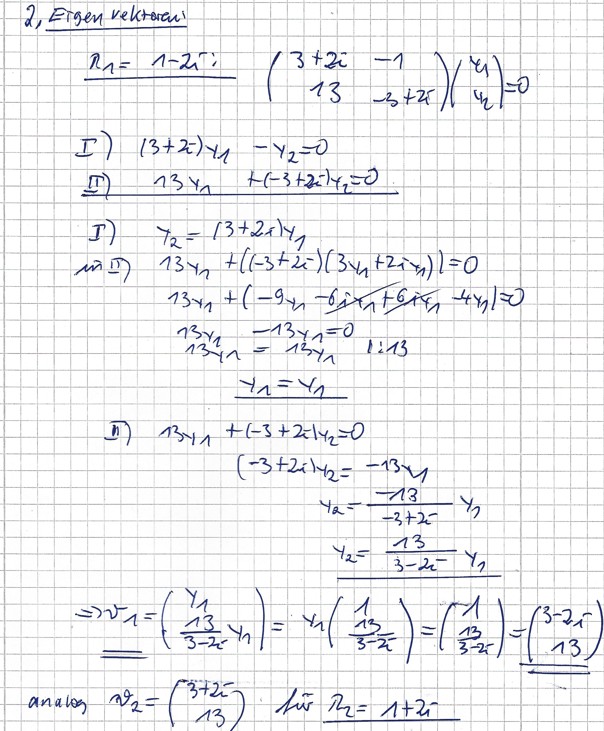 2, Eigenvektoren:
λ1 = 1-2i: (3+2i -1 / 13 -3+2i)(y1 / y2)=0
I) (3+2i)y1 - y2=0
II) 13y1 +(-3+2i)y2=0
I) y2 = (3+2i)y1
in II) 13y1 +((-3+2i)(3y1+2iy1))=0
13y1 + (-9y1 -6iy1+6iy1 -4y1)=0
13y1 -13y1=0
13y1 = 13y1 |:13
y1 = y1
II) 13y1 +(-3+2i)y2=0
(-3+2i)y2= -13y1
y2= -13/(-3+2i) y1
y2= 13/(3-2i) y1
=> v1 = (y1 / 13/(3-2i) y1) = y1 (1 / 13/(3-2i)) = (1 / 13/(3-2i)) = (3-2i / 13)
analog v2 = (3+2i / 13) für λ2 = 1+2i